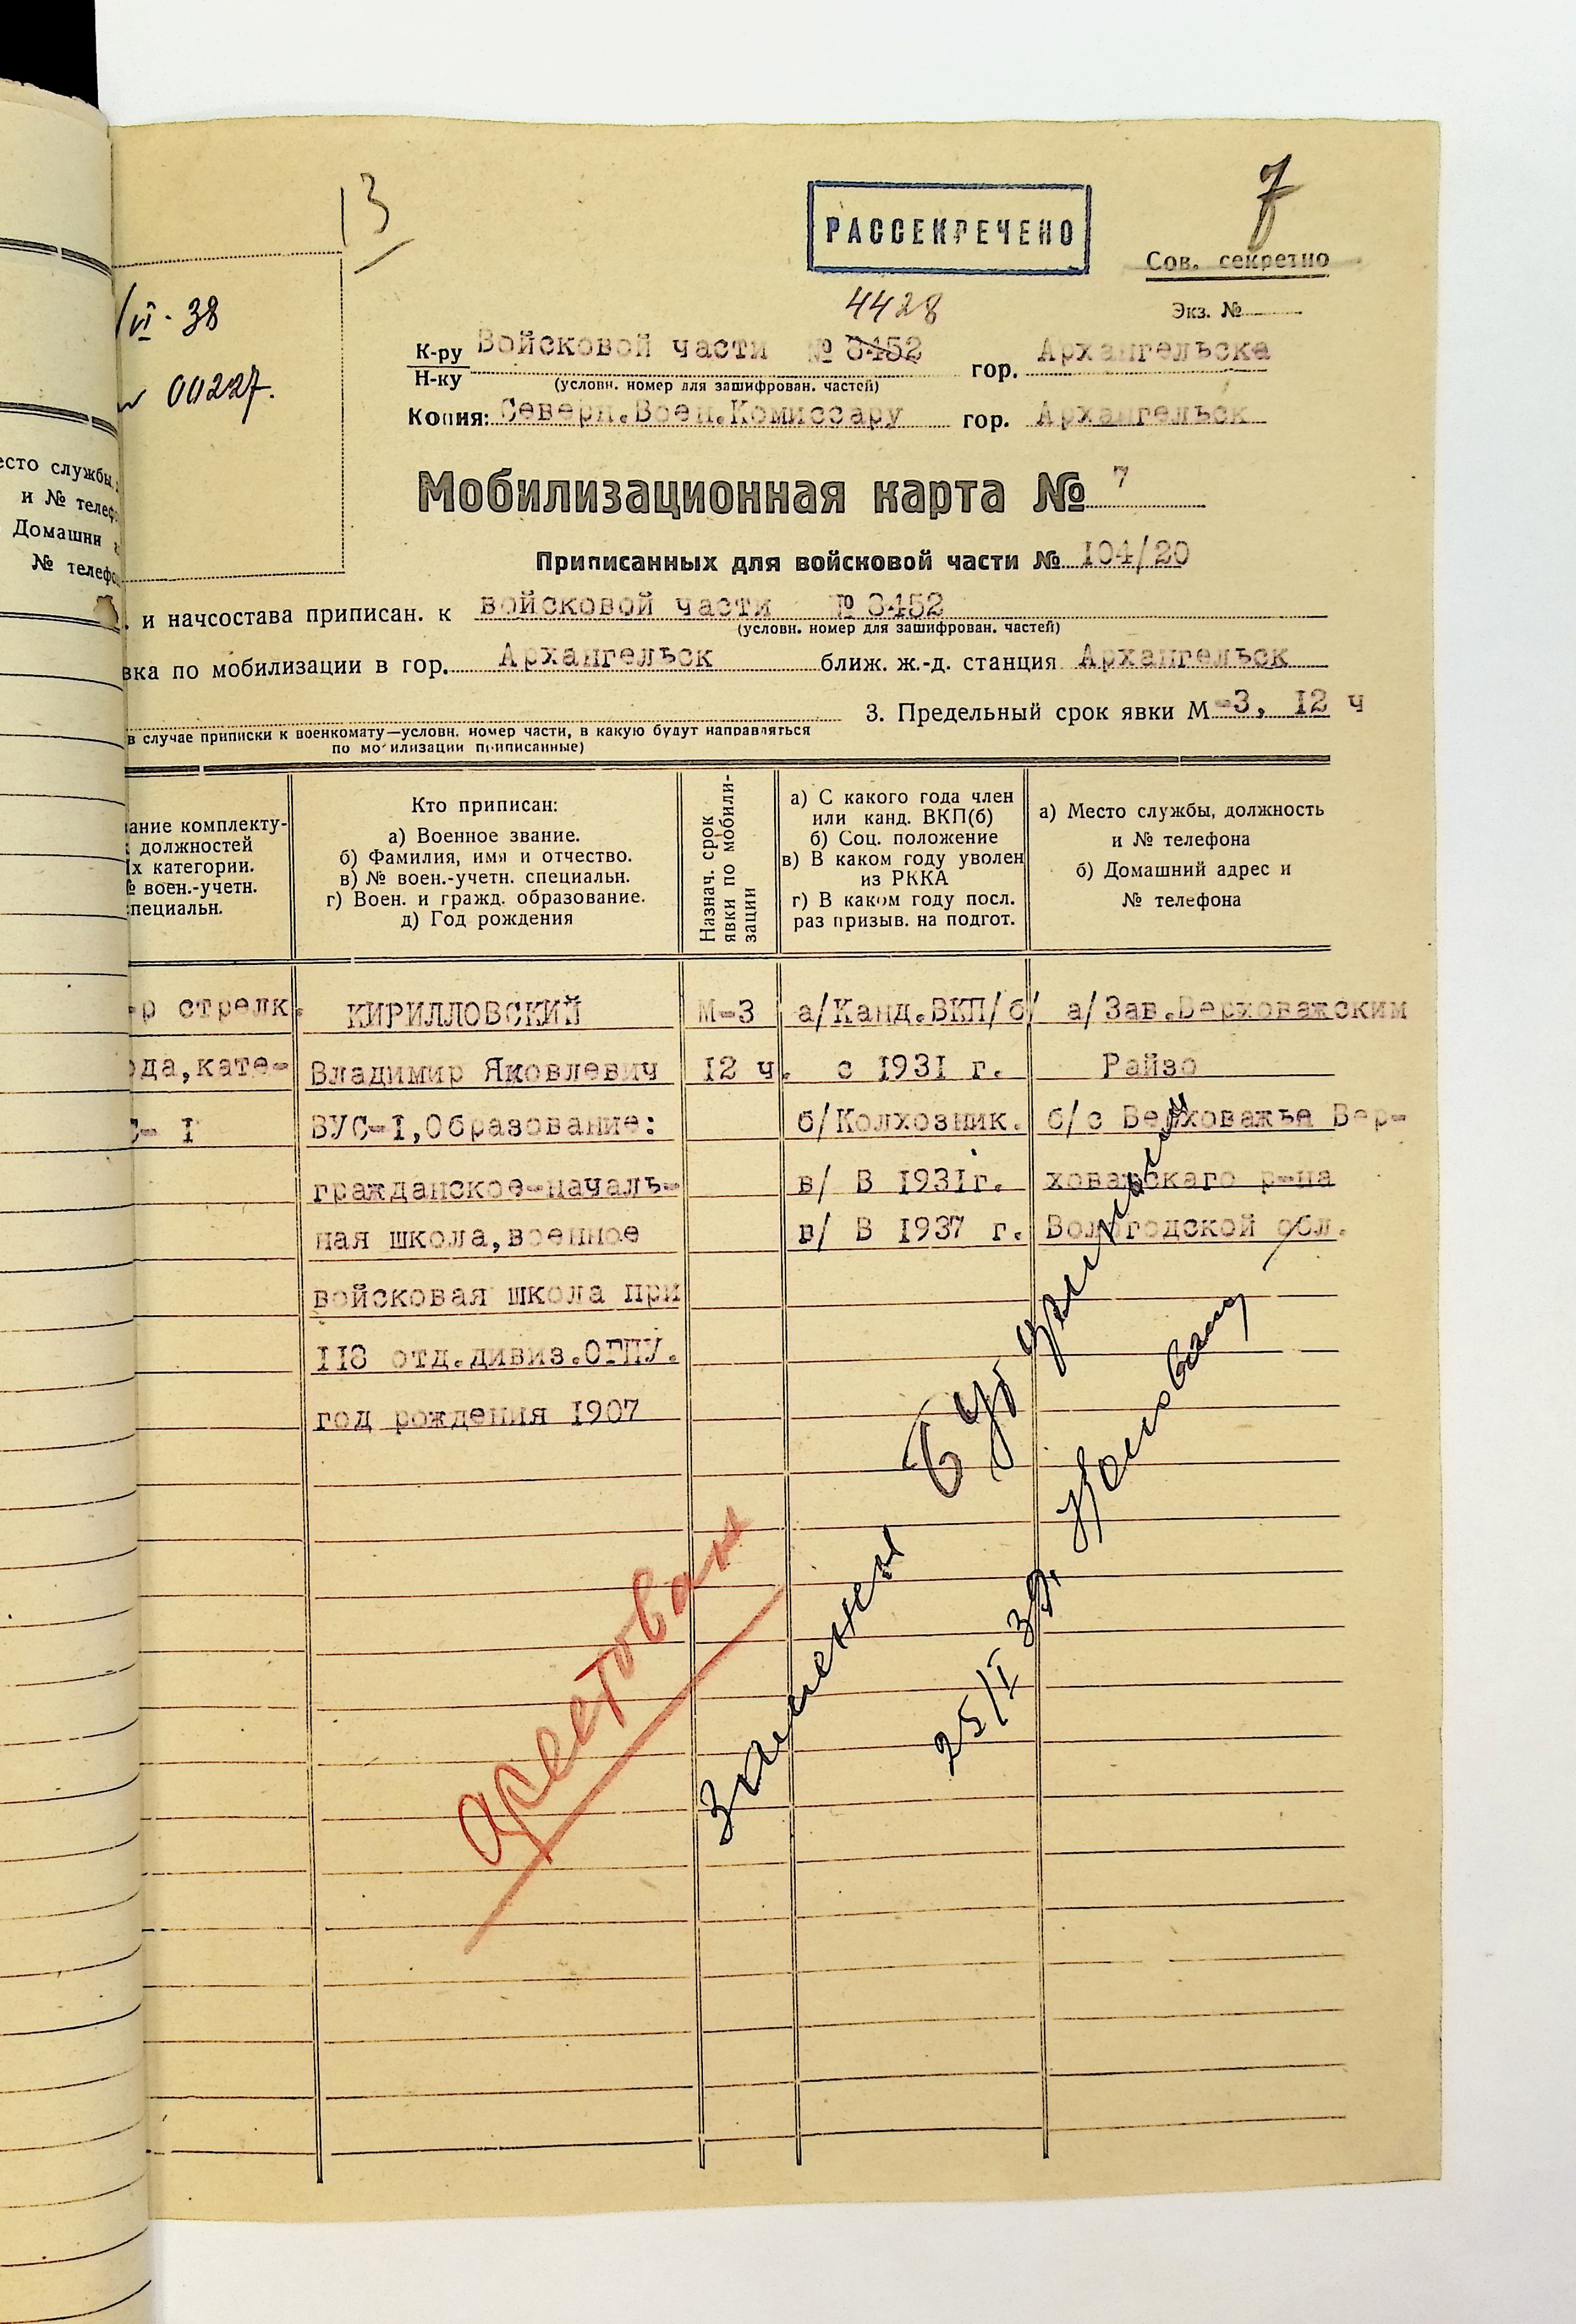 13
РАССЕКРЕЧЕНО
7
Сов. секретно
Экз. №
/VI - 38
00227.
4428
К-ру Войсковой части № 3452 гор. Архангельска
Н-ку
(условн. номер для зашифрован. частей)
Копия: Северн.Воен.Комиссару гор. Архангельск
Мобилизационная карта № 7
Приписанных для войсковой части № 104/20
и начсостава приписан. к войсковой части № 3452
(условн. номер для зашифрован. частей)
вка по мобилизации в гор. Архангельск ближ. ж.-д. станция Архангельск
3. Предельный срок явки М-3, 12 ч
в случае приписки к военкомату—условн. номер части, в какую будут направляться
по мобилизации приписанные)
есто службы,
и № телеф
Домашни
№ телефо
ание комплекту-
должностей
их категории.
№ воен.-учетн.
специальн.
Кто приписан:
а) Военное звание.
б) Фамилия, имя и отчество.
в) № воен.-учетн. специальн.
г) Воен. и гражд. образование.
д) Год рождения
Назнач. срок
явки по мобили-
зации
а) С какого года член
или канд. ВКП(б)
б) Соц. положение
в) В каком году уволен
из РККА
г) В каком году посл.
раз призыв. на подгот.
а) Место службы, должность
и № телефона
б) Домашний адрес и
№ телефона
-р стрелк. КИРИЛЛОВСКИЙ М-3 а/Канд.ВКП/б/ а/Зав.Верховажским
ода,кате- Владимир Яковлевич 12 ч. с 1931 г. Райзо
С- I ВУС-I,Образование: б/Колхозник. б/с Верховажье Вер-
гражданское-началь- в/ В 1931г. ховажскаго р-на
ная школа,военное в/ В 1937 г. Вологодской обл.
войсковая школа при
118 отд.дивиз.ОГПУ.
год рождения 1907
арестован
Заменен
25/I 39.